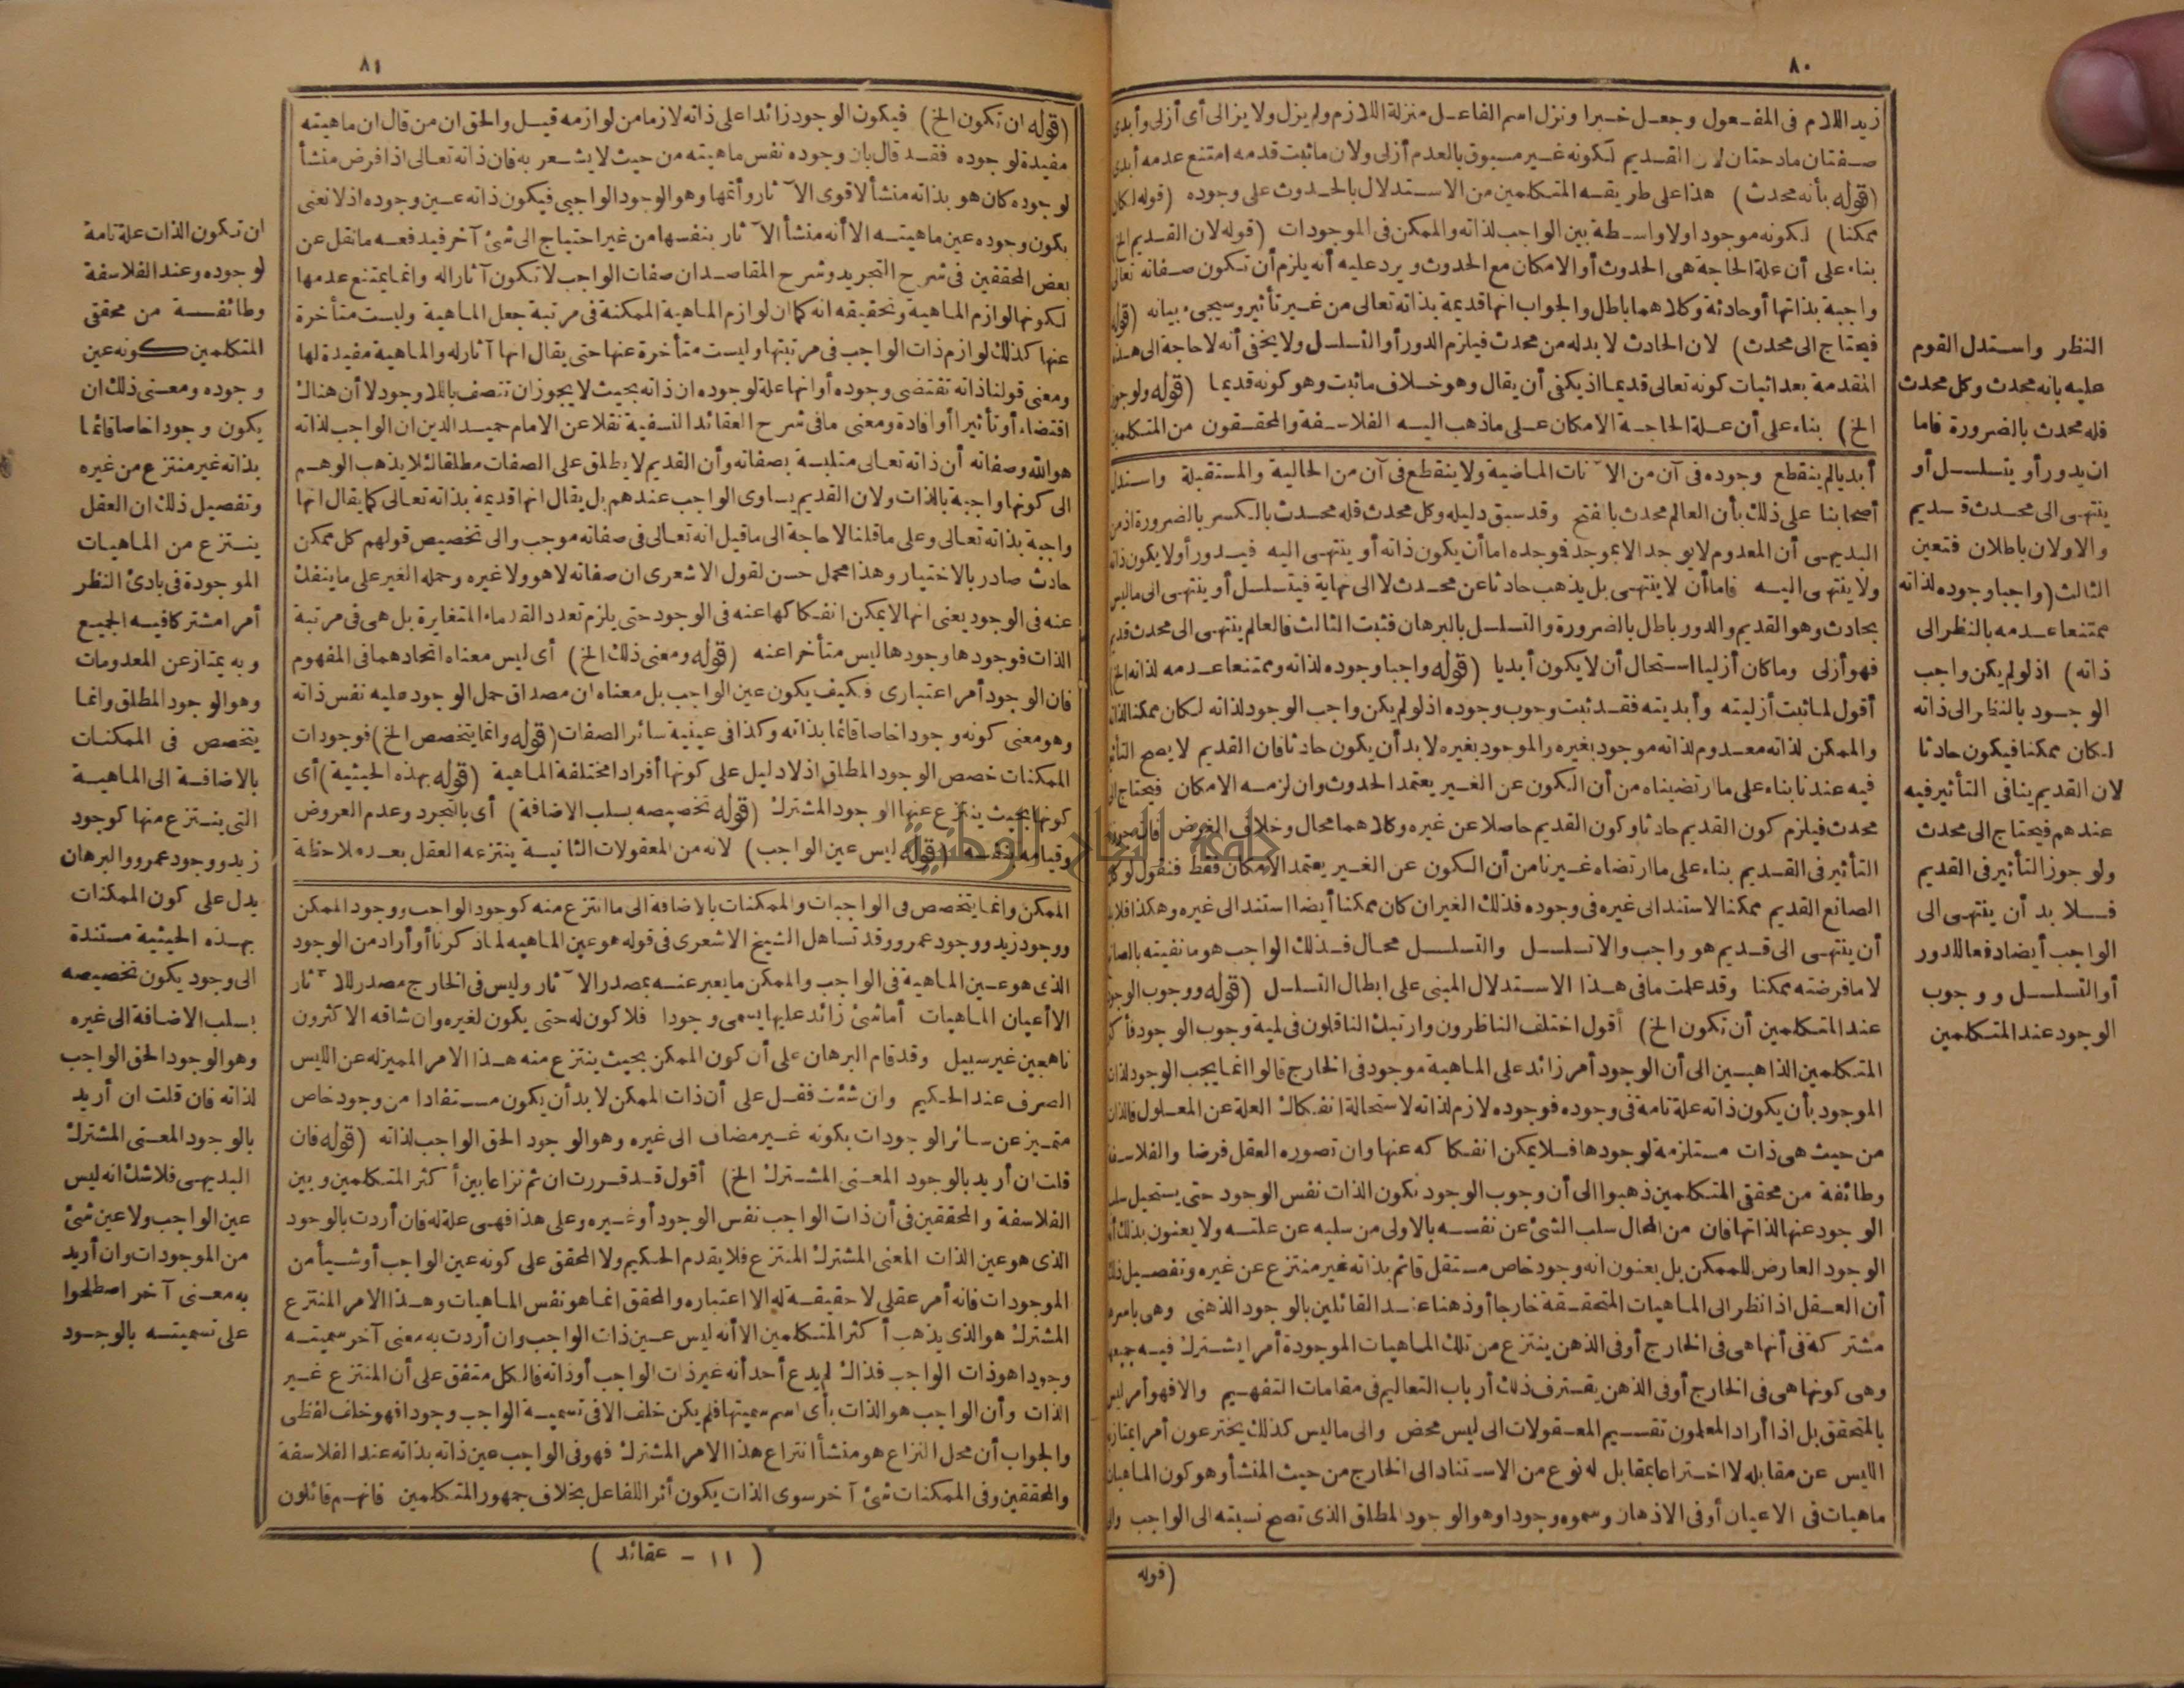 ٨٠
زيد اللام فى المفعول وجعل خبرا ونزل اسم الفاعل منزلة اللازم ولم يزل ولا يزال أى أزلى وأبدى
صفتان مادحتان لان القديم لكونه غير مسبوق بالعدم أزلى ولان ماثبت قدمه امتنع عدمه أبدى
(قوله بأنه محدث) هذا على طريقة المتكلمين من الاستدلال بالحدوث على وجوده (قوله لكان
ممكنا) لكونه موجودا ولا واسطة بين الواجب لذاته والممكن فى الموجودات (قوله لان القديم الخ
بناء على أن علة الحاجة هى الحدوث أو الامكان مع الحدوث ويرد عليه أنه يلزم أن تكون صفاته تعالى
واجبة بذاتها أو حادثة وكلاهما باطل والجواب انها قديمة بذاته تعالى من غير تأثير وسيجىء بيانه (قوله
فيحتاج الى محدث) لان الحادث لا بد له من محدث فيلزم الدور أو التسلسل ولا يخفى أنه لا حاجة الى هذه
المقدمة بعد اثبات كونه تعالى قديما اذ يكفى أن يقال وهو خلاف ماثبت وهو كونه قديما (قوله ولو جوز
الخ) بناء على أن علة الحاجة الامكان على ما ذهب اليه الفلاسفة والمحققون من المتكلمين
أبديا لم ينقطع وجوده فى آن من الآنات الماضية ولا ينقطع فى آن من الحالية والمستقبلة واستدل
أصحابنا على ذلك بأن العالم محدث بالفتح وقد سبق دليله وكل محدث فله محدث بالكسر بالضرورة اذ من
البديهى أن المعدوم لا يوجد الا بموجد فوجده اما أن يكون ذاته أو ينتهى اليه فيدور أو لا يكون ذاته
ولا ينتهى اليه فاما أن لا ينتهى بل يذهب حادثا عن محدث لا الى نهاية فيتسلسل أو ينتهى الى ما ليس
بحادث وهو القديم والدور باطل بالضرورة والتسلسل بالبرهان فثبت الثالث فالعالم ينتهى الى محدث قديم
فهو أزلى وما كان أزليا استحال أن لا يكون أبديا (قوله واجبا وجوده لذاته وممتنعا عدمه لذاته الخ)
أقول لما ثبت أزليته وأبديته فقد ثبت وجوب وجوده اذ لو لم يكن واجب الوجود لذاته لكان ممكنا لذاته
والممكن لذاته معدوم لذاته موجود بغيره والموجود بغيره لا بد أن يكون حادثا فان القديم لا يصح التأثير
فيه عندنا بناء على ما ارتضيناه من أن الكون عن الغير يعتمد الحدوث وان لزمه الامكان فيحتاج الى
محدث فيلزم كون القديم حادثا وكون القديم حاصلا عن غيره وكلاهما محال وخلاف الفرض
التأثير فى القديم بناء على ما ارتضاه غيرنا من أن الكون عن الغير يعتمد الامكان فقط فنقول لو كان
الصانع القديم ممكنا لاستند الى غيره فى وجوده فذلك الغير ان كان ممكنا أيضا استند الى غيره وهكذا فلابد
أن ينتهى الى قديم هو واجب والا تسلسل والتسلسل محال فذلك الواجب هو ما نفيته بالصانع
لا ما فرضته ممكنا وقد علمت ما فى هذا الاستدلال المبنى على ابطال التسلسل (قوله ووجوب الوجود
عند المتكلمين أن تكون الخ) أقول اختلف الناظرون وارتبك الناقلون فى لمية وجوب الوجود فأكثر
المتكلمين الذاهبين الى أن الوجود أمر زائد على الماهية موجود فى الخارج قالوا انما يجب الوجود لذات
الموجود بأن يكون ذاته علة تامة فى وجوده فوجوده لازم لذاته لاستحالة انفكاك العلة عن المعلول فالذات
من حيث هى ذات مستلزمة لوجودها فلا يمكن انفكاكه عنها وان تصوره العقل فرضا والفلاسفة
وطائفة من محققى المتكلمين ذهبوا الى أن وجوب الوجود بكون الذات نفس الوجود حتى يستحيل سلب
الوجود عنها لذاتها فان من المحال سلب الشئ عن نفسه بالاولى من سلبه عن علته ولا يعنون بذلك أن
الوجود العارض للممكن بل يعنون انه وجود خاص مستقل قائم بذاته غير منتزع عن غيره وتفصيل ذلك
أن العقل اذا نظر الى الماهيات المتحققة خارجا أو ذهنا عند القائلين بالوجود الذهنى وهى بأسرها
مشتركة فى أنها هى فى الخارج أو فى الذهن ينتزع من تلك الماهيات الموجودة أمرا يشترك فيه جميعها
وهى كونها هى فى الخارج أو فى الذهن يقترف ذلك أرباب التعاليم فى مقامات التفهيم والا فهو أمر ليس
بالمتحقق بل اذا أراد المعلمون تقسيم المعقولات الى ليس محض والى ما ليس كذلك يخترعون أمرا يمتاز به
الليس عن مقابله لا اختراعا بمقابل له نوع من الاستناد الى الخارج من حيث المنشأ وهو كون الماهيات
ماهيات فى الاعيان أو فى الاذهان وسموه وجودا وهو الوجود المطلق الذى تصح نسبته الى الواجب والى
(قوله
النظر واستدل القوم
عليه بانه محدث وكل محدث
فله محدث بالضرورة فاما
ان يدور أو يتسلسل أو
ينتهى الى محدث قديم
والاولان باطلان فتعين
الثالث (واجبا وجوده لذاته
ممتنعا عدمه بالنظر الى
ذاته) اذ لو لم يكن واجب
الوجود بالنظر الى ذاته
لكان ممكنا فيكون حادثا
لان القديم ينافى التأثير فيه
عندهم فيحتاج الى محدث
ولو جوز التأثير فى القديم
فلا بد أن ينتهى الى
الواجب أيضا دفعا للدور
أو التسلسل ووجوب
الوجود عند المتكلمين
٨١
(قوله ان تكون الخ) فيكون الوجود زائدا على ذاته لازما من لوازمه قيل والحق ان من قال ان ماهيته
مفيدة لوجوده فقد قال بان وجوده نفس ماهيته من حيث لا يشعر به فان ذاته تعالى اذا فرض منشأ
لوجوده كان هو بذاته منشأ لاقوى الآثار وأتمها وهو الوجود الواجبى فيكون ذاته عين وجوده اذ لا نعنى
بكون وجوده عين ماهيته الا أنه منشأ الآثار بنفسها من غير احتياج الى شئ آخر فيدفعه ما نقل عن
بعض المحققين فى شرح التجريد وشرح المقاصد ان صفات الواجب لا تكون آثارا له وانما يمتنع عدمها
لكونها لوازم الماهية وتحقيقه انه كما ان لوازم الماهية الممكنة فى مرتبة جعل الماهية وليست متأخرة
عنها كذلك لوازم ذات الواجب فى مرتبتها وليست متأخرة عنها حتى يقال انها آثار له والماهية مفيدة لها
ومعنى قولنا ذاته تقتضى وجوده أو انها علة لوجوده ان ذاته بحيث لا يجوز ان تتصف باللاوجود لا أن هناك
اقتضاء أو تأثيرا أو افادة ومعنى ما فى شرح العقائد النسفية نقلا عن الامام حميد الدين ان الواجب لذاته
هو الله وصفاته أن ذاته تعالى متلبسة بصفاته وأن القديم لا يطلق على الصفات مطلقا لئلا يذهب الوهم
الى كونها واجبة بالذات ولان القديم يساوى الواجب عندهم بل يقال انها قديمة بذاته تعالى كما يقال انها
واجبة بذاته تعالى وعلى ما قلنا لا حاجة الى ما قيل انه تعالى فى صفاته موجب والى تخصيص قولهم كل ممكن
حادث صادر بالاختيار وهذا محمل حسن لقول الاشعرى ان صفاته لا هو ولا غيره وحمله الغير على ما ينفك
عنه فى الوجود يعنى انها لا يمكن انفكاكها عنه فى الوجود حتى يلزم تعدد القدماء المتغايرة بل هى فى مرتبة
الذات فوجودها وجودها ليس متأخرا عنه (قوله ومعنى ذلك الخ) أى ليس معناه اتحادهما فى المفهوم
فان الوجود أمر اعتبارى فكيف يكون عين الواجب بل معناه ان مصداق حمل الوجود عليه نفس ذاته
وهو معنى كونه وجودا خاصا قائما بذاته وكذا فى عينية سائر الصفات (قوله وانما يتخصص الخ) فوجودات
الممكنات حصص الوجود المطلق اذ لا دليل على كونها أفرادا مختلفة الماهية (قوله بهذه الحيثية) أى
كونها بحيث ينتزع عنها الوجود المشترك (قوله تخصيصه بسلب الاضافة) أى بالتجرد وعدم العروض
وقيامه بنفسه (قوله ليس عين الواجب) لانه من المعقولات الثانية ينتزعه العقل بعد ملاحظة
الممكن وانما يتخصص فى الواجبات والممكنات بالاضافة الى ما انتزع منه كوجود الواجب ووجود الممكن
ووجود زيد ووجود عمرو وقد تساهل الشيخ الاشعرى فى قوله هو عين الماهيه لما ذكرنا أو أراد من الوجود
الذى هو عين الماهية فى الواجب والممكن ما يعبر عنه بمصدر الآثار وليس فى الخارج مصدر للآثار
الا أعيان الماهيات أما شئ زائد عليها يسمى وجودا فلا كون له حتى يكون لغيره وان شاقه الاكثرون
ناهجين غير سبيل وقد قام البرهان على أن كون الممكن بحيث ينتزع منه هذا الامر المميز له عن الليس
الصرف عند الحكيم وان شئت فقل على أن ذات الممكن لا بد أن يكون مستفادا من وجود خاص
متميز عن سائر الوجودات بكونه غير مضاف الى غيره وهو الوجود الحق الواجب لذاته (قوله فان
قلت ان أريد بالوجود المعنى المشترك الخ) أقول قد قررت ان ثم نزاعا بين أكثر المتكلمين وبين
الفلاسفة والمحققين فى أن ذات الواجب نفس الوجود أو غيره وعلى هذا فهى علة له فان أردت بالوجود
الذى هو عين الذات المعنى المشترك المنتزع فلا يقدم الحكيم ولا المحقق على كونه عين الواجب أو شيأ من
الموجودات فانه أمر عقلى لا حقيقة له الا اعتباره والمحقق انما هو نفس الماهيات وهذا الامر المنتزع
المشترك هو الذى يذهب أكثر المتكلمين الا أنه ليس عين ذات الواجب وان أردت به معنى آخر سميته
وجودا هو ذات الواجب فذاك لم يدع أحد أنه غير ذات الواجب أو ذاته فالكل متفق على أن المنتزع غير
الذات وأن الواجب هو الذات بأى اسم سميتها فلم يكن خلف الا فى تسمية الواجب وجودا فهو خلف لفظى
والجواب أن محل النزاع هو منشأ انتزاع هذا الامر المشترك فهو فى الواجب عين ذاته بذاته عند الفلاسفة
والمحققين وفى الممكنات شئ آخر سوى الذات يكون أثر اللفاعل بخلاف جمهور المتكلمين فانهم قائلون
(١١ - عقائد)
ان تكون الذات علة تامة
لوجوده وعند الفلاسفة
وطائفة من محققى
المتكلمين كونه عين
وجوده ومعنى ذلك ان
يكون وجودا خاصا قائما
بذاته غير منتزع من غيره
وتفصيل ذلك ان العقل
ينتزع من الماهيات
الموجودة فى بادئ النظر
أمرا مشتركا فيه الجميع
وبه يمتاز عن المعدومات
وهو الوجود المطلق وانما
يتخصص فى الممكنات
بالاضافة الى الماهية
التى ينتزع منها كوجود
زيد ووجود عمرو والبرهان
يدل على كون الممكنات
بهذه الحيثية مستندة
الى وجود يكون تخصيصه
بسلب الاضافة الى غيره
وهو الوجود الحق الواجب
لذاته فان قلت ان أريد
بالوجود المعنى المشترك
البديهى فلا شك انه ليس
عين الواجب ولا عين شئ
من الموجودات وان أريد
به معنى آخر اصطلحوا
على تسميته بالوجود
جامعة النجاح الوطنية